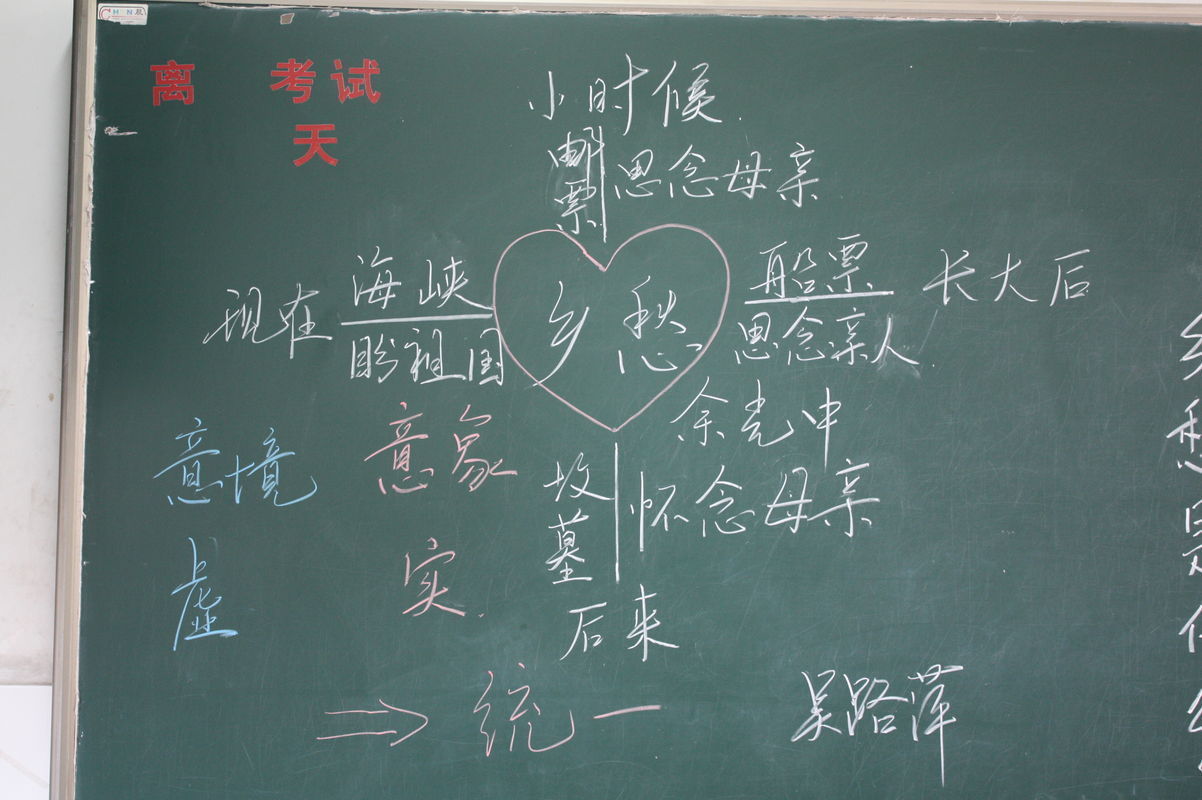 离 考试
天
小时候
邮票
思念母亲
现在
海峡
盼祖国
乡愁
船票
思念亲人
长大后
余光中
意境
意象
坟墓
怀念母亲
虚
实
后来
⇒ 统一
吴路萍